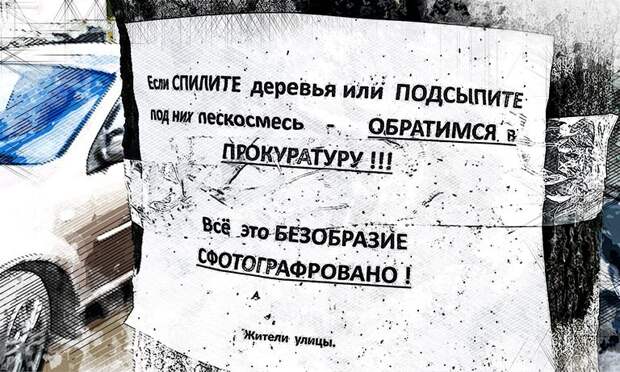 Если СПИЛИТЕ деревья или ПОДСЫПИТЕ
под них пескосмесь - ОБРАТИМСЯ в
ПРОКУРАТУРУ !!!
Всё это БЕЗОБРАЗИЕ
СФОТОГРАФРОВАНО !
Жители улицы.